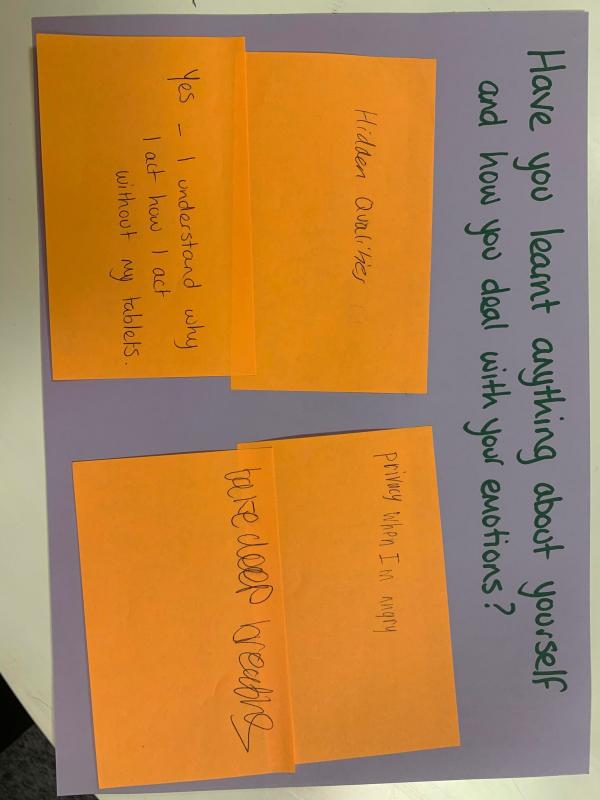 Have you learnt anything about yourself
and how you deal with your emotions?
Hidden Qualities
Yes - I understand why
I act how I act
without my tablets.
privacy when I'm angry
take deep breaths